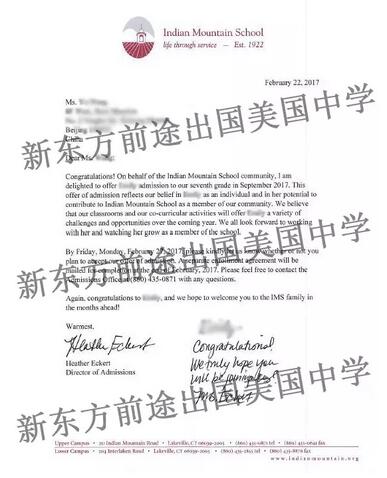 Indian Mountain School
life through service — Est. 1922
February 22, 2017
Ms.
Beijing
China
Dear Ms.
Congratulations! On behalf of the Indian Mountain School community, I am
delighted to offer admission to our seventh grade in September 2017. This
offer of admission reflects our belief in as an individual and in her potential to
contribute to Indian Mountain School as a member of our community. We believe
that our classrooms and our co-curricular activities will offer a variety of
challenges and opportunities over the coming year. We all look forward to working
with her and watching her grow as a member of the school.
By Friday, Monday, February 27, 2017, please kindly let us know whether or not you
plan to accept our offer of admission. A separate enrollment agreement will be
mailed for completion at the end of February, 2017. Please feel free to contact the
Admissions Office at (860) 435-0871 with any questions.
Again, congratulations to and we hope to welcome you to the IMS family in
the months ahead!
Warmest,
Heather Eckert
Heather Eckert
Director of Admissions
Congratulations!
We truly hope you
will be joining
Ms. Eckert
Upper Campus • 211 Indian Mountain Road • Lakeville, CT 06039-2005 • (860) 435-0871 tel • (860) 435-0641 fax
Lower Campus • 204 Interlaken Road • Lakeville, CT 06039-2005 •
www.indianmountain.org
新东方前途出国美国中学
新东方前途出国美国中学
新东方前途出国美国中学